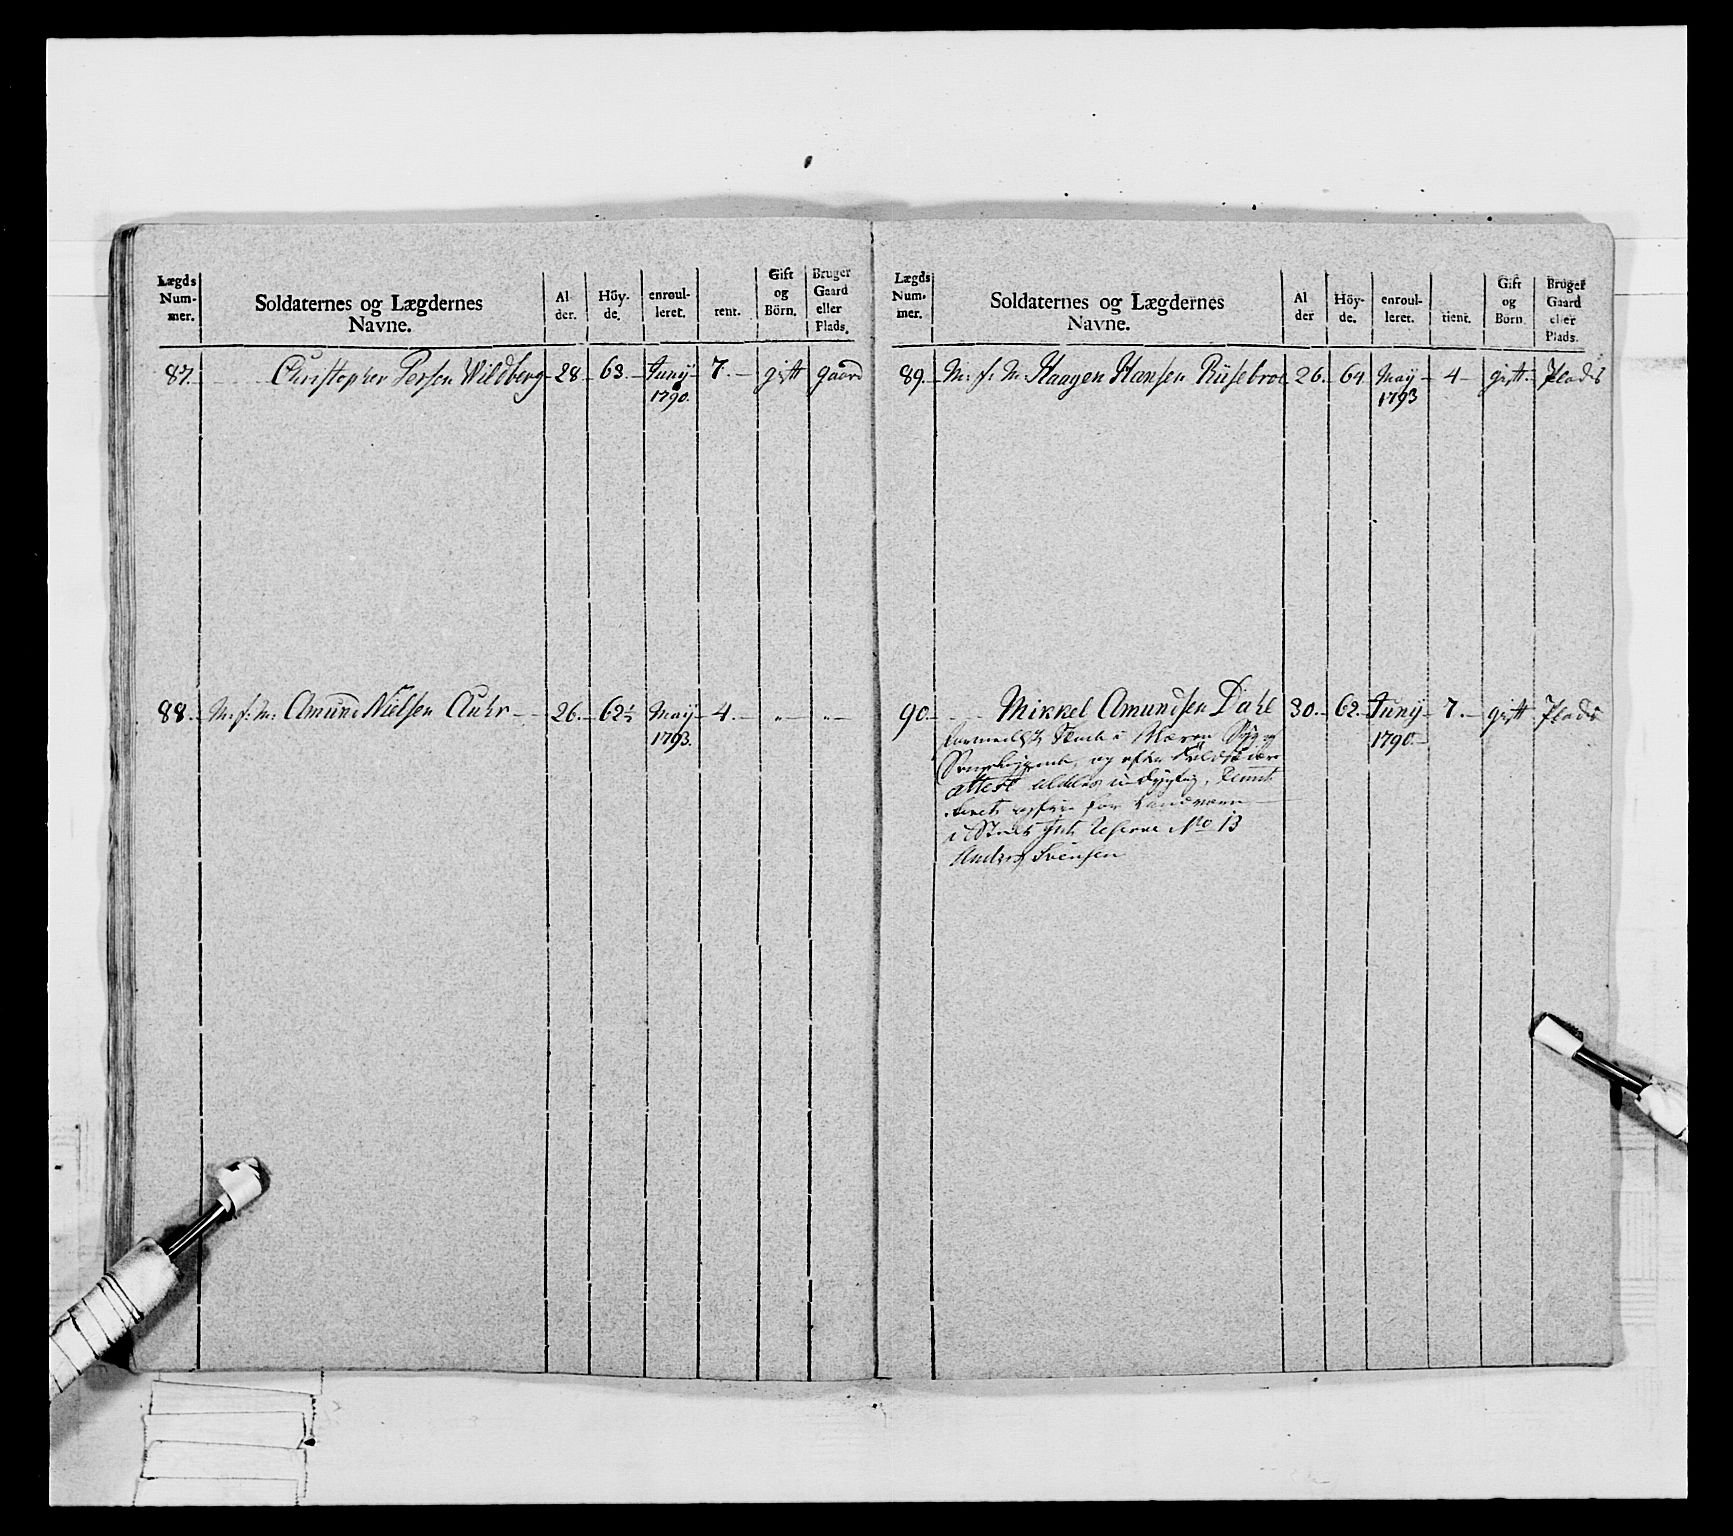 Lægds Num- mer. Soldaternes og Lægdernes Navne. Al der. Höy- de. enroul- leret. rent. Gift og Börn. Bruger Gaard eller Plads.
87. Christopher Persen Wildberg 28 63 Junÿ 7. gift gaard
1790.
88. M. f. M. Amund Nielsen Auhr 26. 62½ Maÿ 4. „ „
1793.
Lægds Num- mer. Soldaternes og Lægdernes Navne. Al der Höy- de. enroul- leret. tient. Gift og Börn. Bruger Gaard eller Plads.
89. M. f. M. Haagen Hansen Rüsebroe 26. 64 Maÿ 4 gift. Plads
1793
90. Mikkel Amundsen Dahl 30. 62. Junÿ 7. gift Plads
1790.
og efter
attest
for
i No 13
Anders Svensen